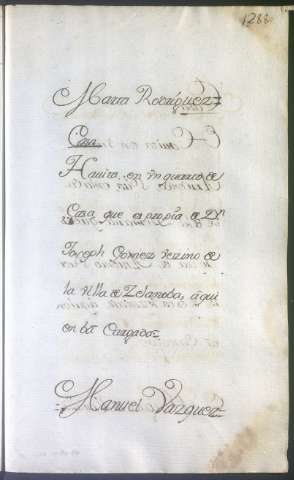 1288
Maria Rodriguez
Casa
Havita, en Vn quarto de
Casa que es propia de Dn
Joseph Gomez vezino de
la villa de Zelanoba, aqui
en bo Cargados
Manuel Vazquez